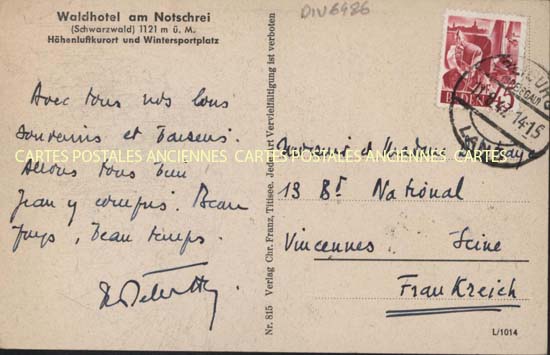 Waldhotel am Notschrei
(Schwarzwald) 1121 m ü. M.
Höhenluftkurort und Wintersportplatz
DIV6986
Avec tous nos bons
souvenirs et baisers.
Allons tous bien
Jean y compris. Beau
pays, beau temps.
Nr. 815 Verlag Chr. Franz, Titisee. Jede Art Vervielfältigung ist verboten
BADEN
47.-14-15
Monsieur et Madame
13 Bd National
Vincennes Seine
Frankreich
L/1014
CARTES POSTALES ANCIENNES CARTES POSTALES ANCIENNES CARTES POSTALES ANCIENNES